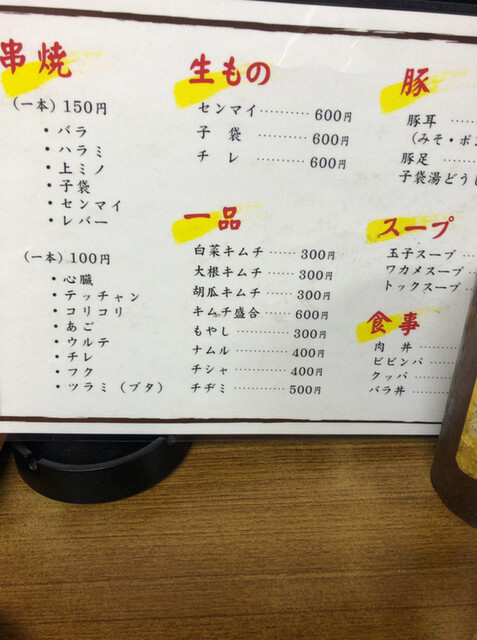 串焼
(一本) 150円
・バラ
・ハラミ
・上ミノ
・子袋
・センマイ
・レバー
(一本) 100円
・心臓
・テッチャン
・コリコリ
・あご
・ウルテ
・チレ
・フク
・ツラミ (ブタ)
生もの
センマイ……… 600円
子 袋 ……… 600円
チ レ ……… 600円
一品
白菜キムチ …… 300円
大根キムチ …… 300円
胡瓜キムチ …… 300円
キムチ盛合 …… 600円
もやし ……… 300円
ナムル ……… 400円
チシャ ……… 400円
チヂミ ……… 500円
豚
豚耳 ……
(みそ・ポン
豚足 ……
子袋湯どうし
スープ
玉子スープ ……
ワカメスープ ……
トックスープ ……
食事
肉 丼 ………
ビビンバ ………
クッパ ………
バラ丼 ………